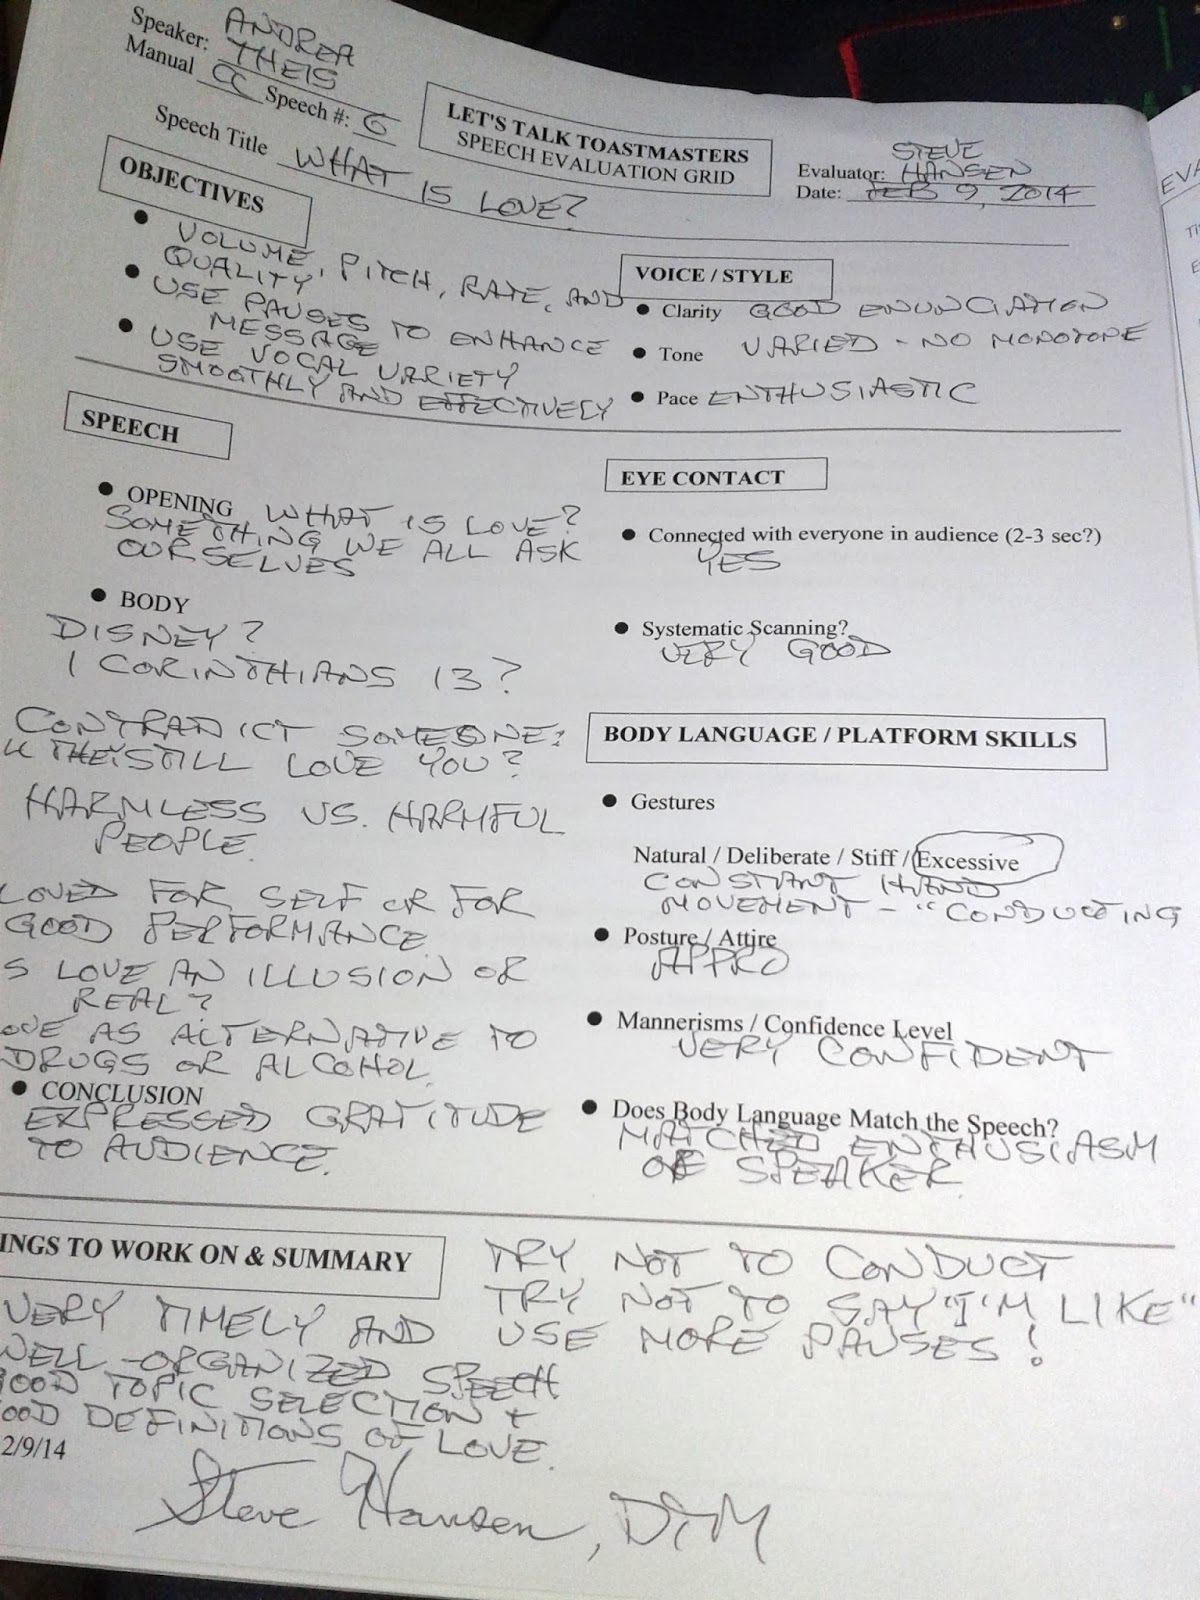 Speaker: ANDREA
THEIS
Manual CC Speech #: 6
Speech Title WHAT IS LOVE?
LET'S TALK TOASTMASTERS
SPEECH EVALUATION GRID
STEVE
Evaluator: HANSEN
Date: FEB 9, 2014
OBJECTIVES
● VOLUME, PITCH, RATE, AND
QUALITY
● USE PAUSES TO ENHANCE
MESSAGE
● USE VOCAL VARIETY
SMOOTHLY AND EFFECTIVELY
VOICE / STYLE
● Clarity GOOD ENUNCIATION
● Tone VARIED - NO MONOTONE
● Pace ENTHUSIASTIC
SPEECH
● OPENING WHAT IS LOVE?
SOMETHING WE ALL ASK
OURSELVES
● BODY
DISNEY?
1 CORINTHIANS 13?
CONTRADICT SOMEONE:
THEY STILL LOVE YOU?
HARMLESS VS. HARMFUL
PEOPLE.
LOVED FOR SELF OR FOR
GOOD PERFORMANCE.
S LOVE AN ILLUSION OR
REAL?
OVE AS ALTERNATIVE TO
DRUGS OR ALCOHOL.
● CONCLUSION
EXPRESSED GRATITUDE
TO AUDIENCE.
EYE CONTACT
● Connected with everyone in audience (2-3 sec?)
YES
● Systematic Scanning?
VERY GOOD
BODY LANGUAGE / PLATFORM SKILLS
● Gestures
Natural / Deliberate / Stiff / Excessive
CONSTANT HAND
MOVEMENT - "CONDUCTING
● Posture / Attire
APPRO
● Mannerisms / Confidence Level
VERY CONFIDENT
● Does Body Language Match the Speech?
MATCHED ENTHUSIASM
OF SPEAKER.
INGS TO WORK ON & SUMMARY
VERY TIMELY AND
WELL-ORGANIZED SPEECH
GOOD TOPIC SELECTION +
OOD DEFINITIONS OF LOVE.
TRY NOT TO CONDUCT
TRY NOT TO SAY "I'M LIKE"
USE MORE PAUSES!
2/9/14
Steve Hansen, DTM
EVA